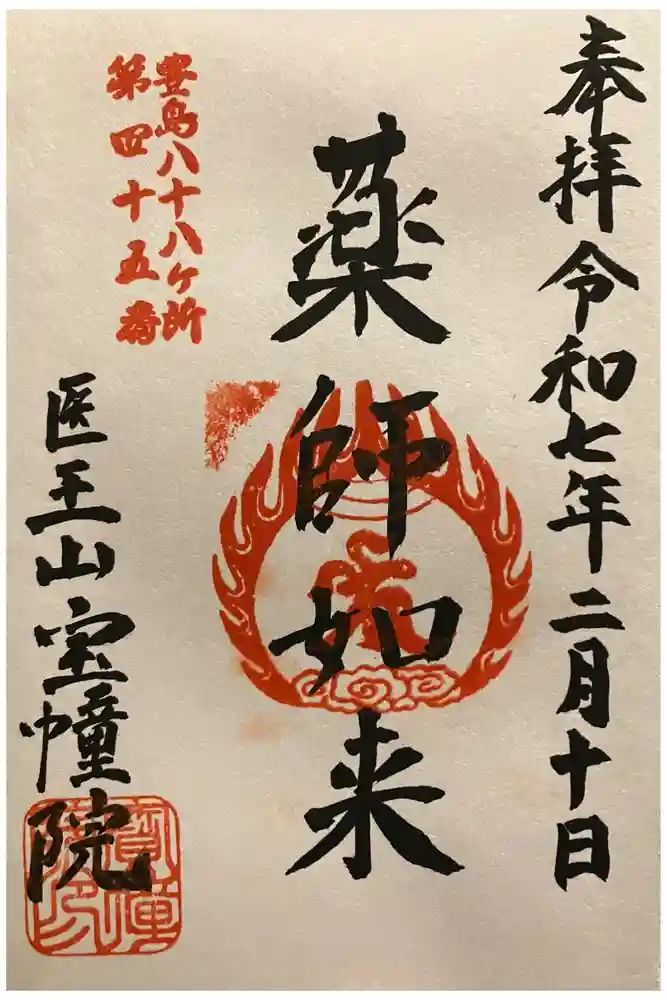 奉拝令和七年二月十日
薬師如来
豊島八十八ヶ所
第四十五番
医王山宝幢院